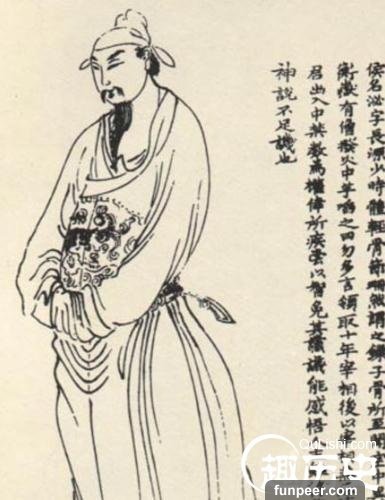 侯名泌字長源少時體輕骨節珊然謂之鎖子骨所至
衡嶽有僧撥火中芋啗之曰勿多言領取十年宰相後以
君出入中禁數為權倖所疾常以智免其讜議能感悟
神說不足譏也
QuLishi.com
趣历史
funpeer.com